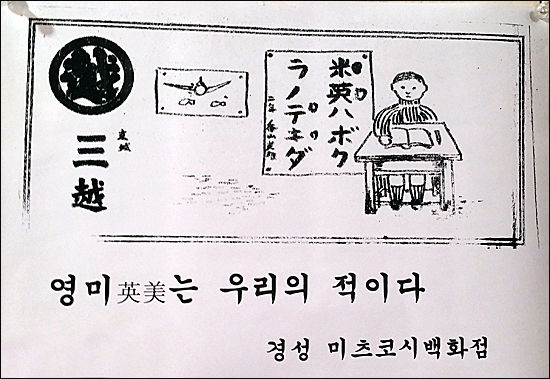 越
京城
三越
米英ハボク
ラノテキダ
二年 香山
영미英美는 우리의 적이다
경성 미츠코시백화점